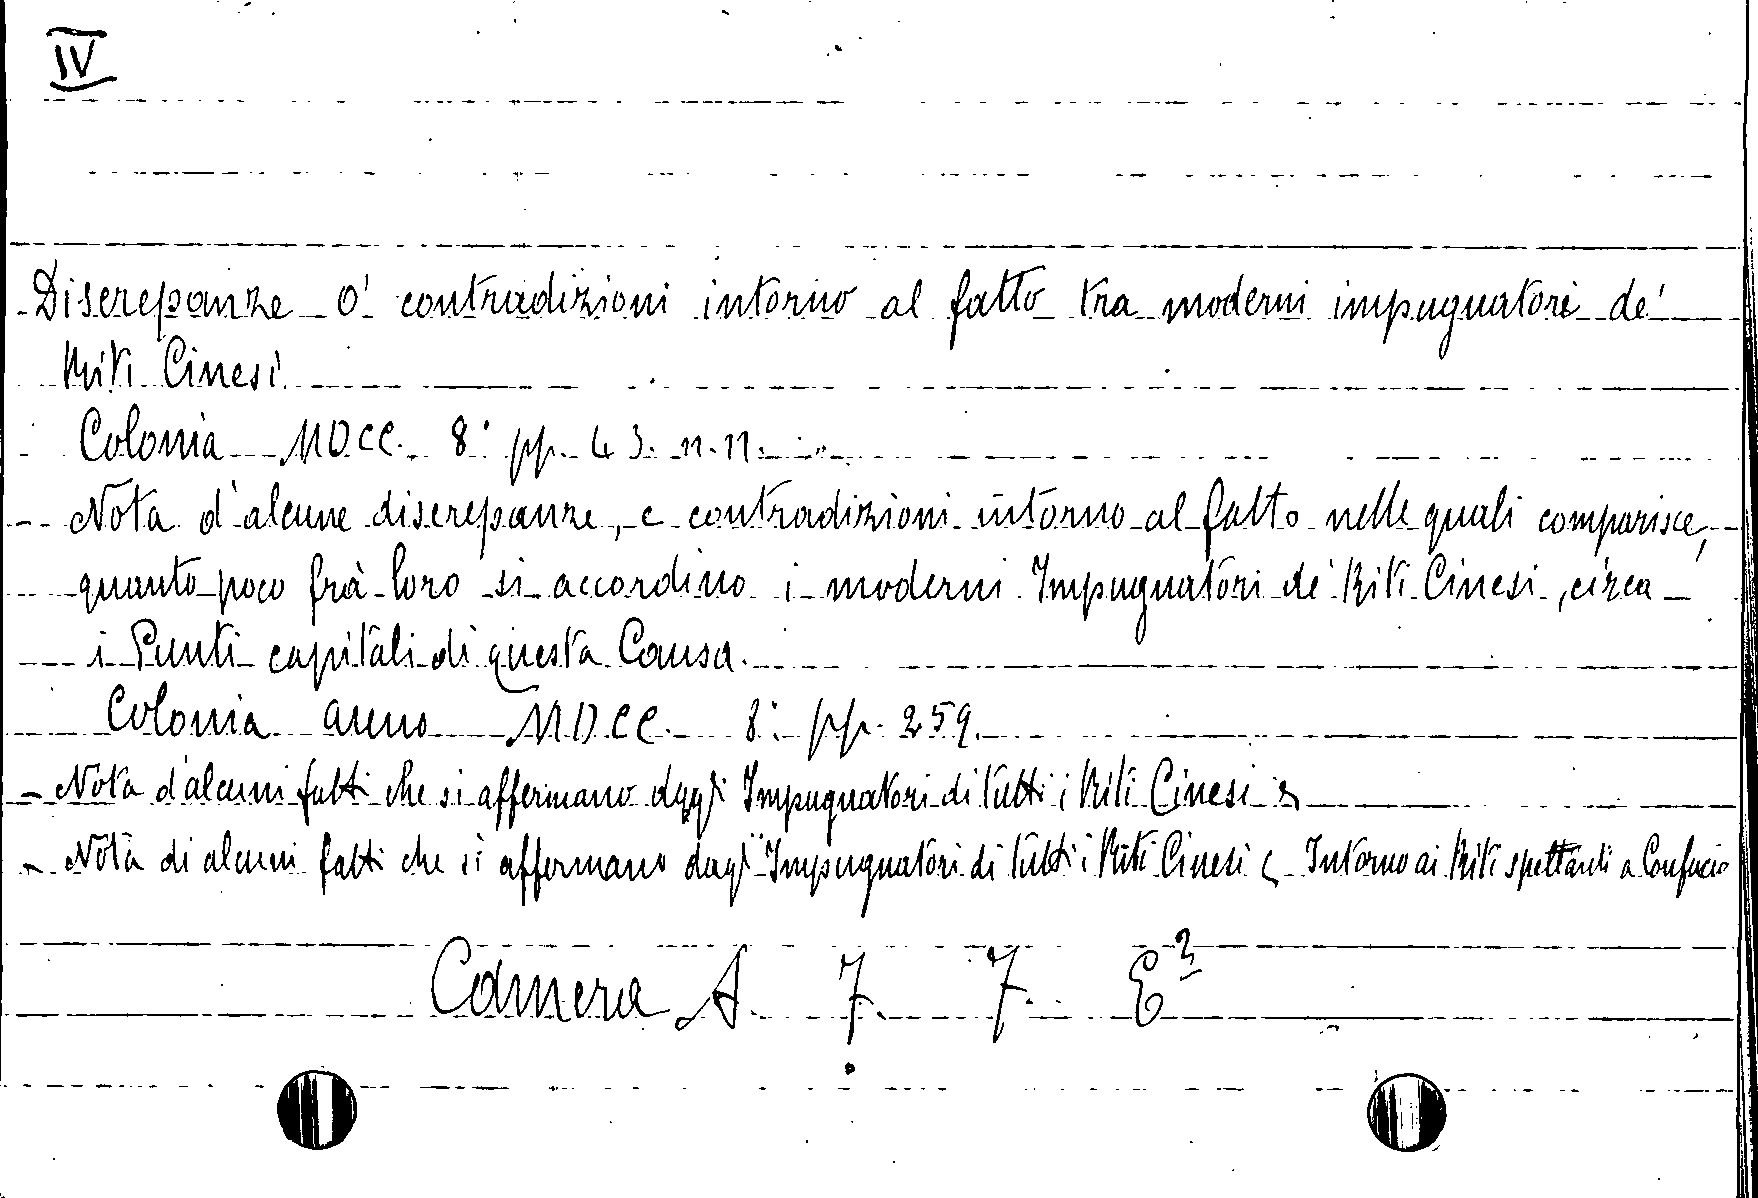 IV
Discrepanze o' contradizioni intorno al fatto tra moderni impugnatori de'
Riti Cinesi
Colonia MDCC. 8° pp. 43. n.n.
Nota d'alcune discrepanze, e contradizioni intorno al fatto nelle quali comparisce,
quanto poco frà loro si accordino i moderni Impugnatori de' Riti Cinesi, circa
i Punti capitali di questa Causa.
Colonia anno MDCC. 8° pp. 259.
- Nota d'alcuni fatti che si affermano dagli Impugnatori di tutti i Riti Cinesi
- Nota di alcuni fatti che si affermano dagl' Impugnatori di tutti i Riti Cinesi Intorno ai Riti spettanti a Confucio
Camera A. 7. 7. E²